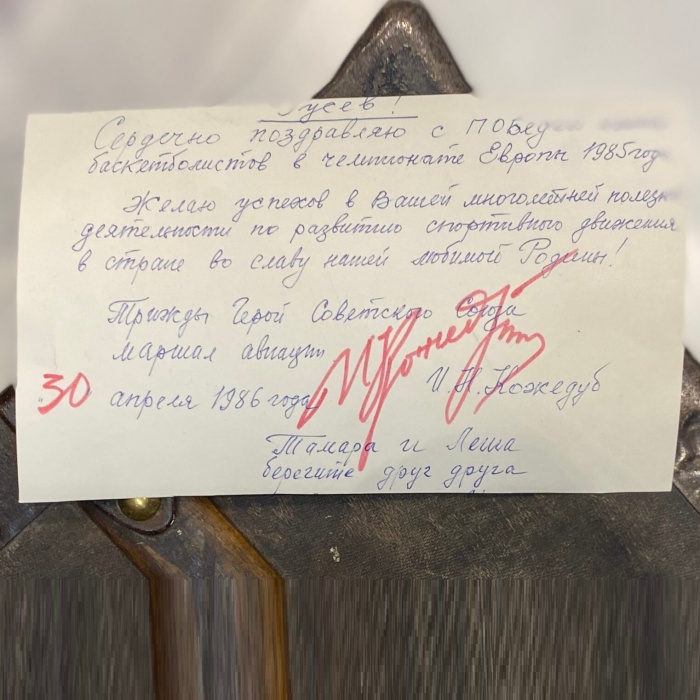 Гусев!
Сердечно поздравляю с ПОбед
баскетболистов в чемпионате Европы 1985год
Желаю успехов в Вашей многолетней полезн
деятельности по развитию спортивного движения
в стране во славу нашей любимой Родины!
Трижды Герой Советского Союза
маршал авиации
И Кожедуб
И.Н.Кожедуб
30 апреля 1986 года
Тамара и Леша
берегите друг друга